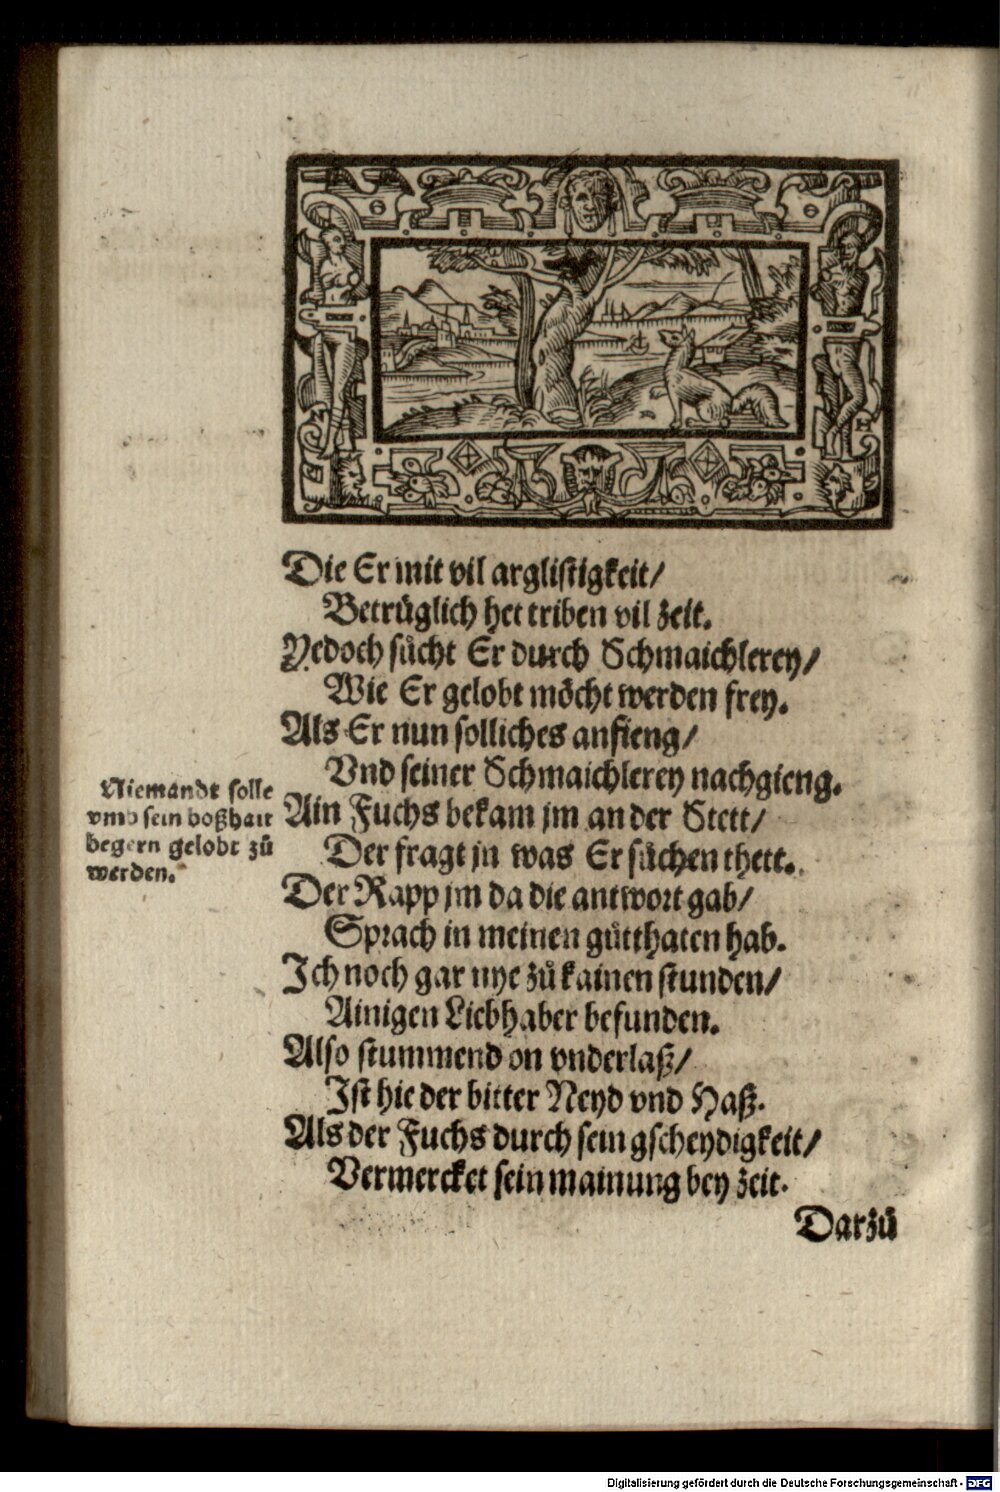 Die Er mit vil arglistigkeit/
Betrüglich het triben vil zeit.
Yedoch sůcht Er durch Schmaichlerey/
Wie Er gelobt möcht werden frey.
Als Er nun solliches anfieng/
Vnd seiner Schmaichlerey nachgieng.
Niemandt solle
vmb sein boßhait
begern gelobt zů
werden.
Ain Fuchs bekam jm an der Stett/
Der fragt jn was Er sůchen thett.
Der Rapp jm da die antwort gab/
Sprach in meinen gůtthaten hab.
Ich noch gar nye zů kainen stunden/
Ainigen Liebhaber befunden.
Also stummend on vnderlaß/
Ist hie der bitter Neyd vnd Haß.
Als der Fuchs durch sein gscheydigkeit/
Vermercket sein mainung bey zeit.
Darzů
Digitalisierung gefördert durch die Deutsche Forschungsgemeinschaft - DFG